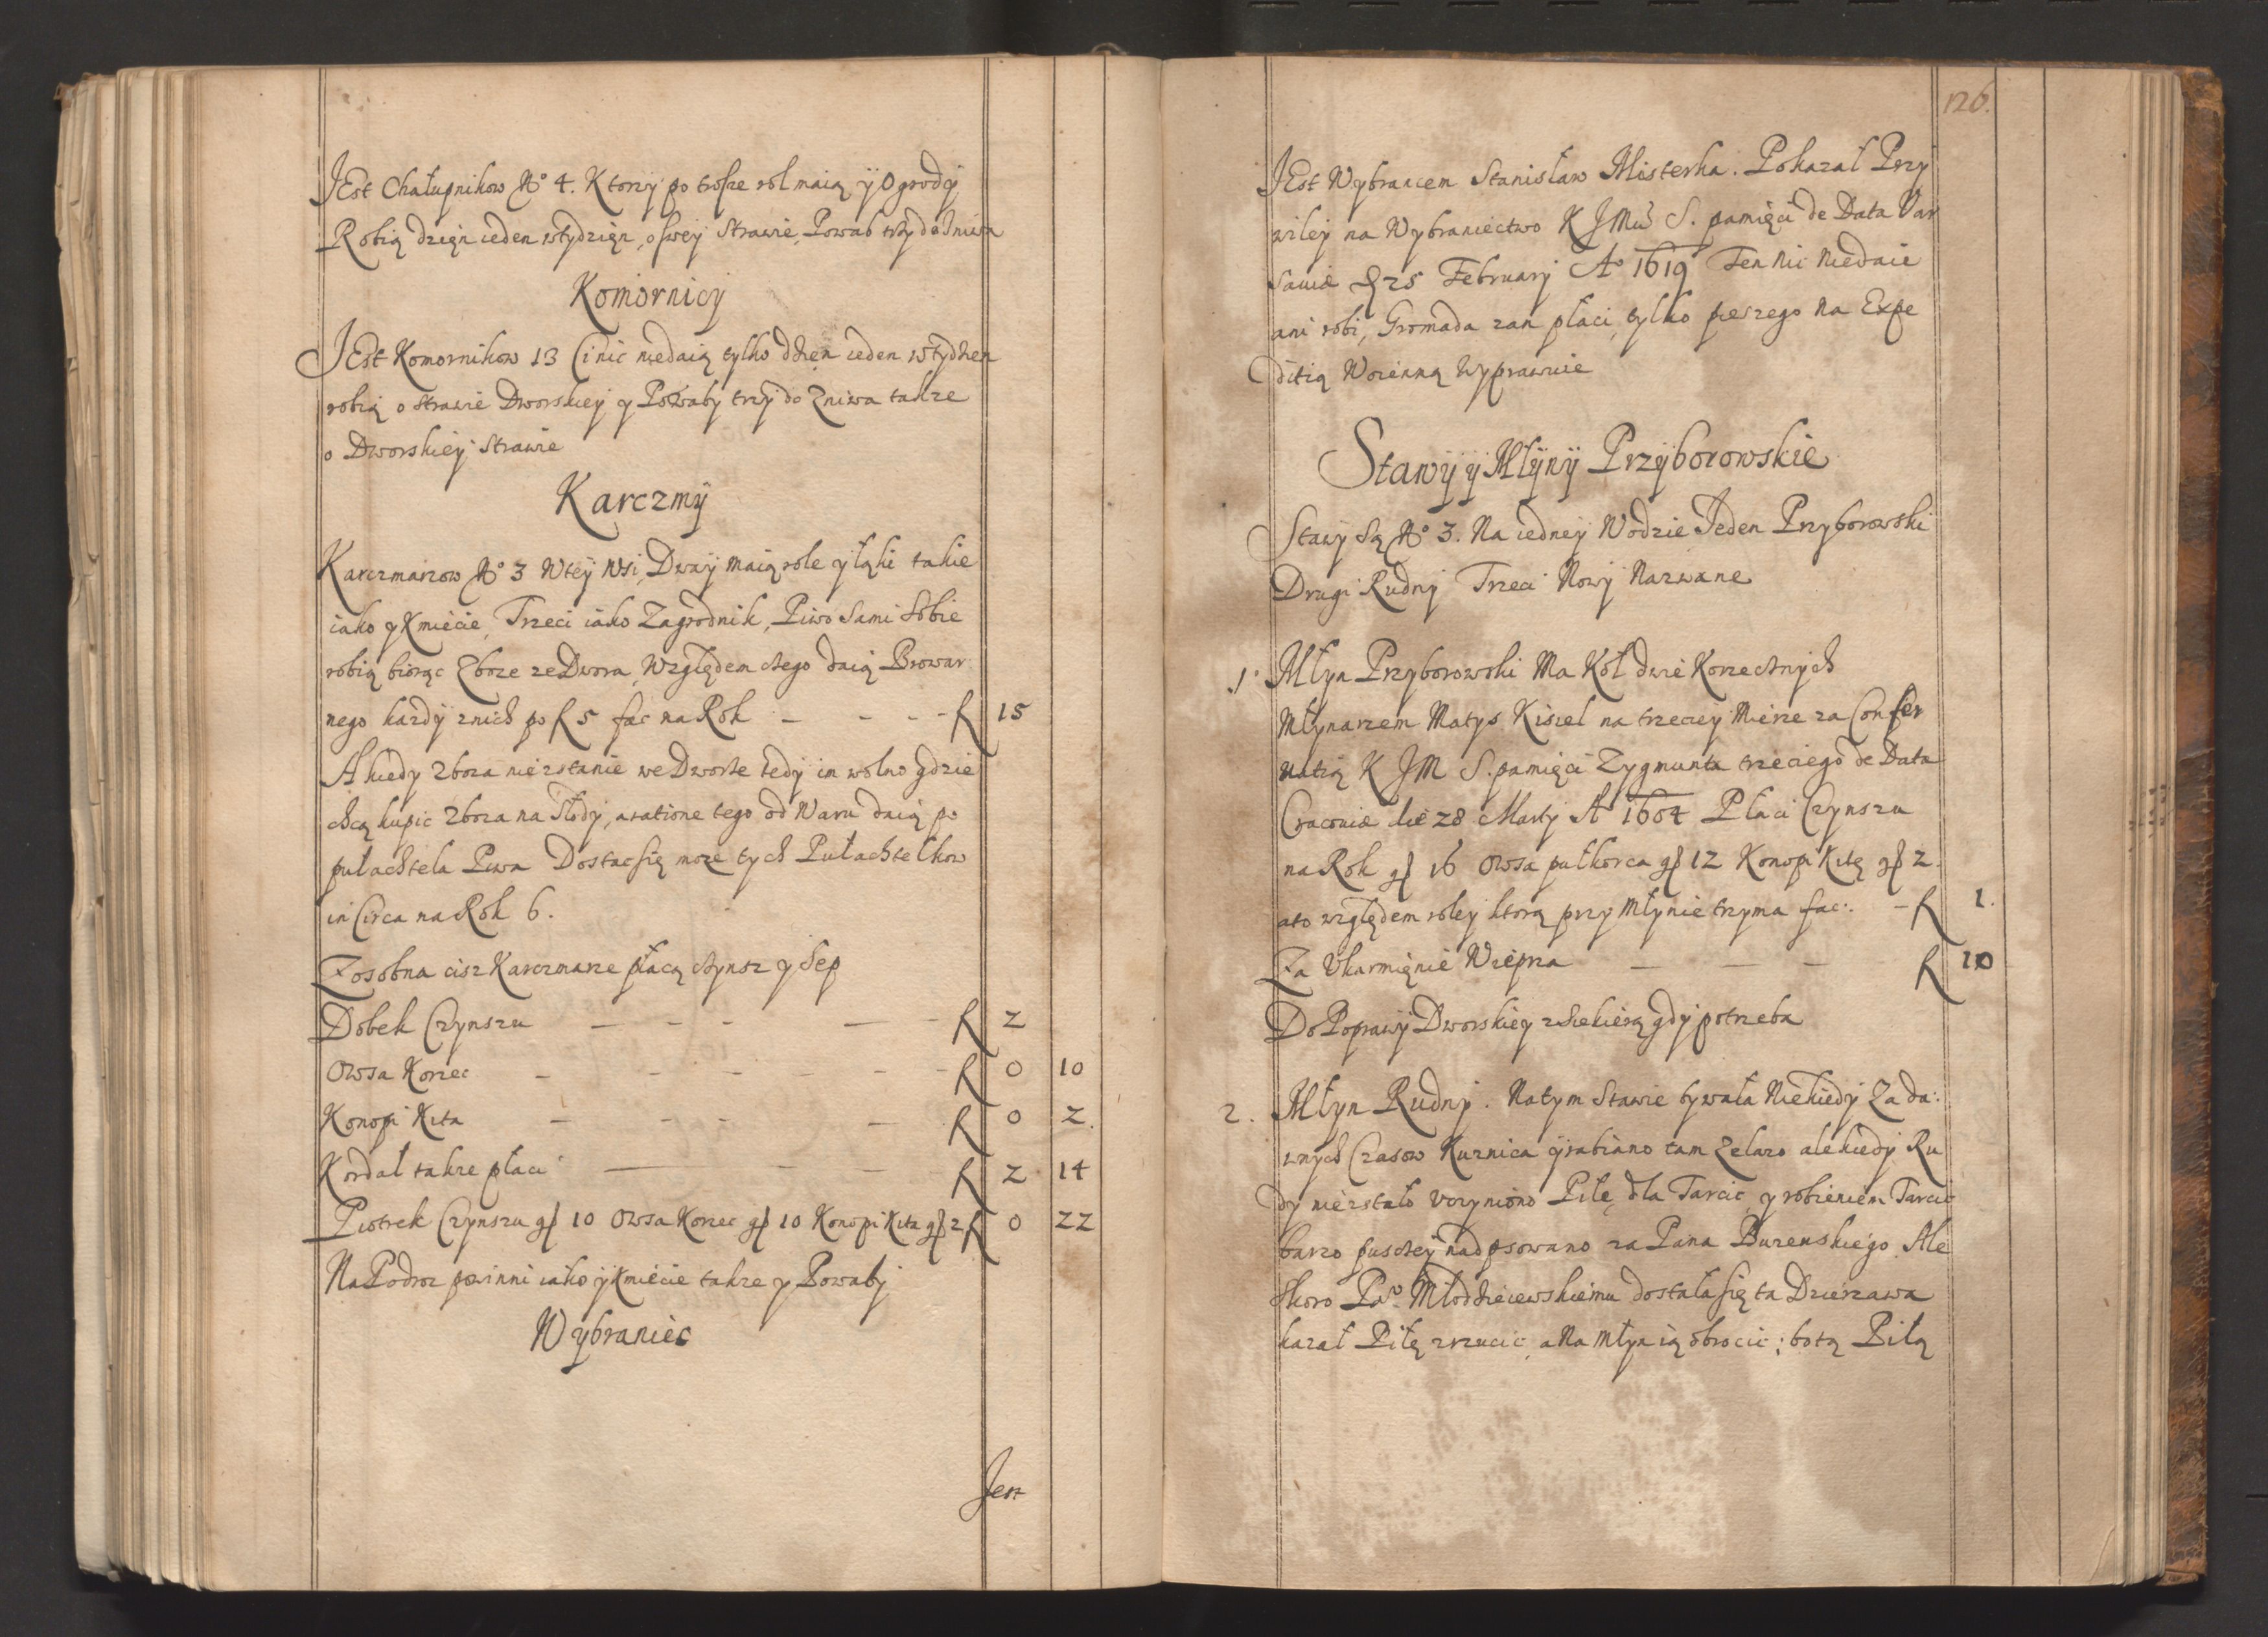 JEst Chałupnikow No 4. Ktorzy po trosze rol maią ÿ Ogrodÿ
Robią dzięn ieden wtydzięn, o swey Strawie, Powab trzy do Zniwa
Komornicÿ
JEst Komornikow 13 Ci nic niedaią tylko dzien ieden wtydzien
robią o strawie Dworskieÿ y Powaby trzÿ do Zniwa takze
o Dworskieÿ Strawie
Karczmÿ
Karczmarzow No 3 Wteÿ Wsi, Dwaÿ maią role ÿ łąki takie
iako y Kmiecie, Trzeci iako Zagrodnik, Piwo Sami sobie
robią biorąc Zboze ze Dwora, Względem czego daią Browar
nego kazdÿ znich po f 5 fac na Rok - - - - f 15
A kiedy Zboza niezstanie we Dworze tedÿ im wolno gdzie
chcą kupic Zboza na Słody, aratione tego od Waru daią po
pułachtela Piwa Dostac się moze tych Pułachtelkow
in Circa na Rok 6.
Zosobna cisz Karczmarze płacą czynsz y Sep
Dobek Czynszu - - - - - f 2
Owsa Korzec - - - - - - f 0 10
Konopi Kita - - - - f 0 2.
Kordał takze płaci - - - f 2 14
Piotrek Czynszu gß 10 Owsa Korzec gß 10 Konopi Kita gß 2 f 0 22
Na Podroz powinni iako ÿ Kmiecie takze y Powabÿ
Wÿbraniec
Jest
126.
JEst Wybrancem Stanisław Misterka. Pokazał Przy
wileÿ na Wybraniectwo K JMci S. pamięci de Data Var
saviæ D 25 Februarij Ao 1619 Ten Nic Niedaie
ani robi, Gromada zan płaci, tylko pieszego na Expe
ditią Woienną Wyprawuie
Stawÿ ÿ Młÿnÿ Przÿborowskie
Stawy Są No 3. Na iedneÿ Wodzie Jeden Przyborowski
Drugi Rudnÿ Trzeci Nowÿ Nazwane
1. Młyn Przyborowski Ma Koł dwie Korzecznÿch
Młynarzem Matys Kisiel na trzecieÿ Mierze za Confer
matią K JM S. pamięci Zygmunta trzeciego de Data
Cracoviæ die 28 Martÿ Ao 1604 Płaci Czynszu
na Rok gß 16 Owsa pułkorca gß 12 Konopi Kitę gß 2.
a to względem roley ktorą przy Młynie trzyma fac: - f 1.
Za Vkarmięnie Wieprza - - - f 10
Do Poprawÿ Dworskieÿ z Siekierą gdÿ potrzeba
2. Młyn Rudnÿ. Natym Stawie bywała Niekiedÿ Za da:
wnych Czasow Kuznica ÿ rabiano tam Zelazo ale kiedÿ Ru
dÿ niezstało vczyniono Piłę dla Tarcic, y robieniem Tarcic
barzo puszczÿ nadpsowano za Pana Burenskiego. Ale
skoro Pao Młodzieiewskiemu dostała się ta Dzierzawa
kazał Piłę zrzucic, a Na Młyn ią obrocic; bo tą Piłą